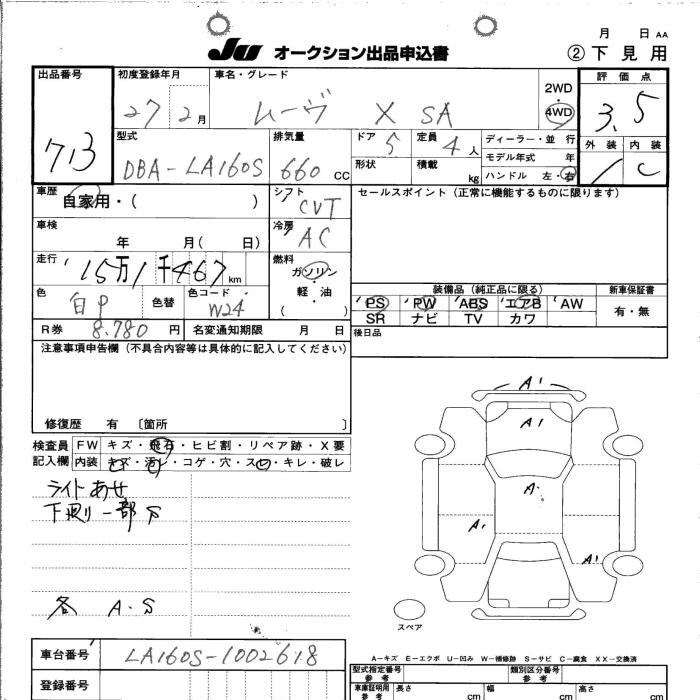 月 日 AA
JU オークション出品申込書 ② 下見用
出品番号 713
初度登録年月 27 2月
車名・グレード ムーヴ X SA
2WD
4WD
評価点 3.5
外装 内装 C
型式 DBA-LA160S
排気量 660 CC
ドア 5
定員 4人
ディーラー・並行
モデル年式 年
形状
積載 kg
ハンドル 左・右
車歴 自家用・( )
シフト CVT
セールスポイント (正常に機能するものに限ります)
車検 年 月( 日)
冷房 AC
走行 15万1千467km
燃料 ガソリン・軽・油・( )
色 白P 色替
色コード W24
装備品 (純正品に限る)
新車保証書
PS PW ABS エアB AW
有・無
SR ナビ TV カワ
R券 8,780円
名変通知期限 月 日
後日品
注意事項申告欄 (不具合内容等は具体的に記入してください)
修復歴 有 〔箇所 〕
検査員 FW キズ・飛石・ヒビ割・リペア跡・X要
記入欄 内装 キズ・汚レ・コゲ・穴・スレ・キレ・破レ
ライトあせ
下廻り一部S
各 A.S
A1
A1
A
A1
A1
スペア
A-キズ E-エクボ U-凹み W-補修跡 S-サビ C-腐食 XX-交換済
車台番号 LA160S-1002618
登録番号
型式指定番号 参考
類別区分番号 参考
車庫証明用 参考
長さ cm
幅 cm
高さ cm